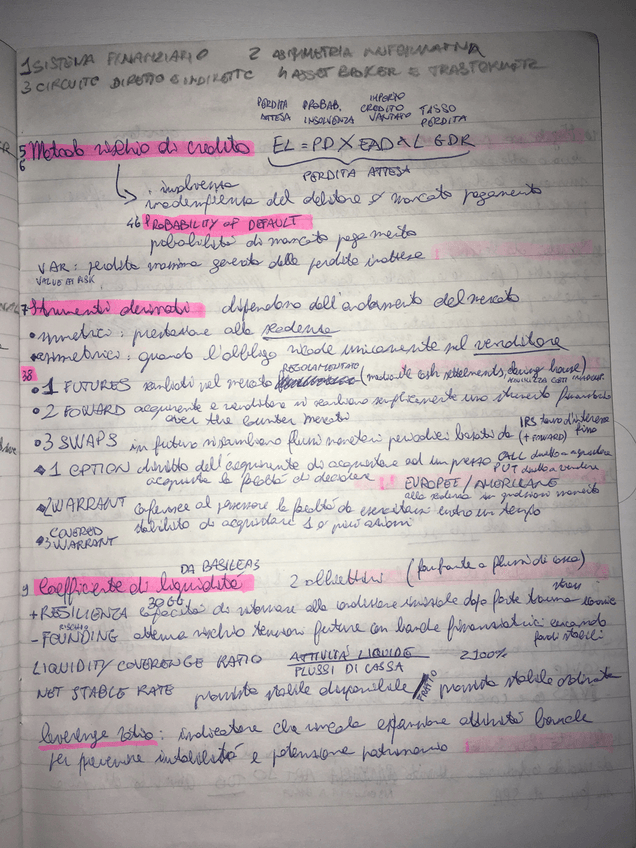 1 SISTEMA FINANZIARIO 2 ASIMMETRIA INFORMATIVA
3 CIRCUITO DIRETTO E INDIRETTO 4 ASSET BROKER E TRASFORMER
PERDITA ATTESA PROBAB. INSOLVENZA IMPORTO CREDITO VANTATO TASSO PERDITA
5 6 Metodo rischio di credito EL = PD X EAD X L GDR
PERDITA ATTESA
insolvenza
inadempienza del debitore o mancato pagamento
46 PROBABILITY OF DEFAULT
probabilità di mancato pagamento
VAR: perdita massima generata dalle perdite inattese
VALUE AT ASK
7 Strumenti derivati dipendono dall'andamento del mercato
• simmetrici: prestazione alla scadenza
• asimmetrici: quando l'obbligo ricade unicamente sul venditore
38
• 1 FUTURES scambiati nel mercato REGOLAMENTATO (mediante cash settlements, clearing house)
• 2 FOWARD acquirente e venditore si scambiano semplicemente uno strumento finanziario
over the counter mercati
• 3 SWAPS in futuro si scambiano flussi monetari periodici basati da IRS tasso d'interesse fisso
(+ FOWARD)
1 OPTION diritto dell'acquirente di acquistare ad un prezzo CALL diritto a acquistare
acquista la facoltà di decidere PUT diritto a vendere
EUROPEE / AMERICANE
2 WARRANT conferisce al possessore la facoltà di esercitarsi entro un tempo
alla scadenza in qualsiasi momento
stabilito di acquistare 1 o più azioni
• 3 COVERED WARRANT
DA BASILEA 3
9 Coefficiente di liquidità 2 obbiettivi (far fronte a flussi di cassa)
+ RESILIENZA 30 GG capacità di ritornare alla condizione iniziale dopo forte trauma stress
- FOUNDING RISCHIO
fondi stabili
LIQUIDITY COVERENGE RATIO ATTIVITÀ LIQUIDE / FLUSSI DI CASSA ≥100%
NET STABLE RATE provvista stabile disponibile / FRATTO provvista stabile obbligata
Leverenge ratio: indicatore che vincola espansione attività bancale
per prevenire instabilità e potenziare patrimonio